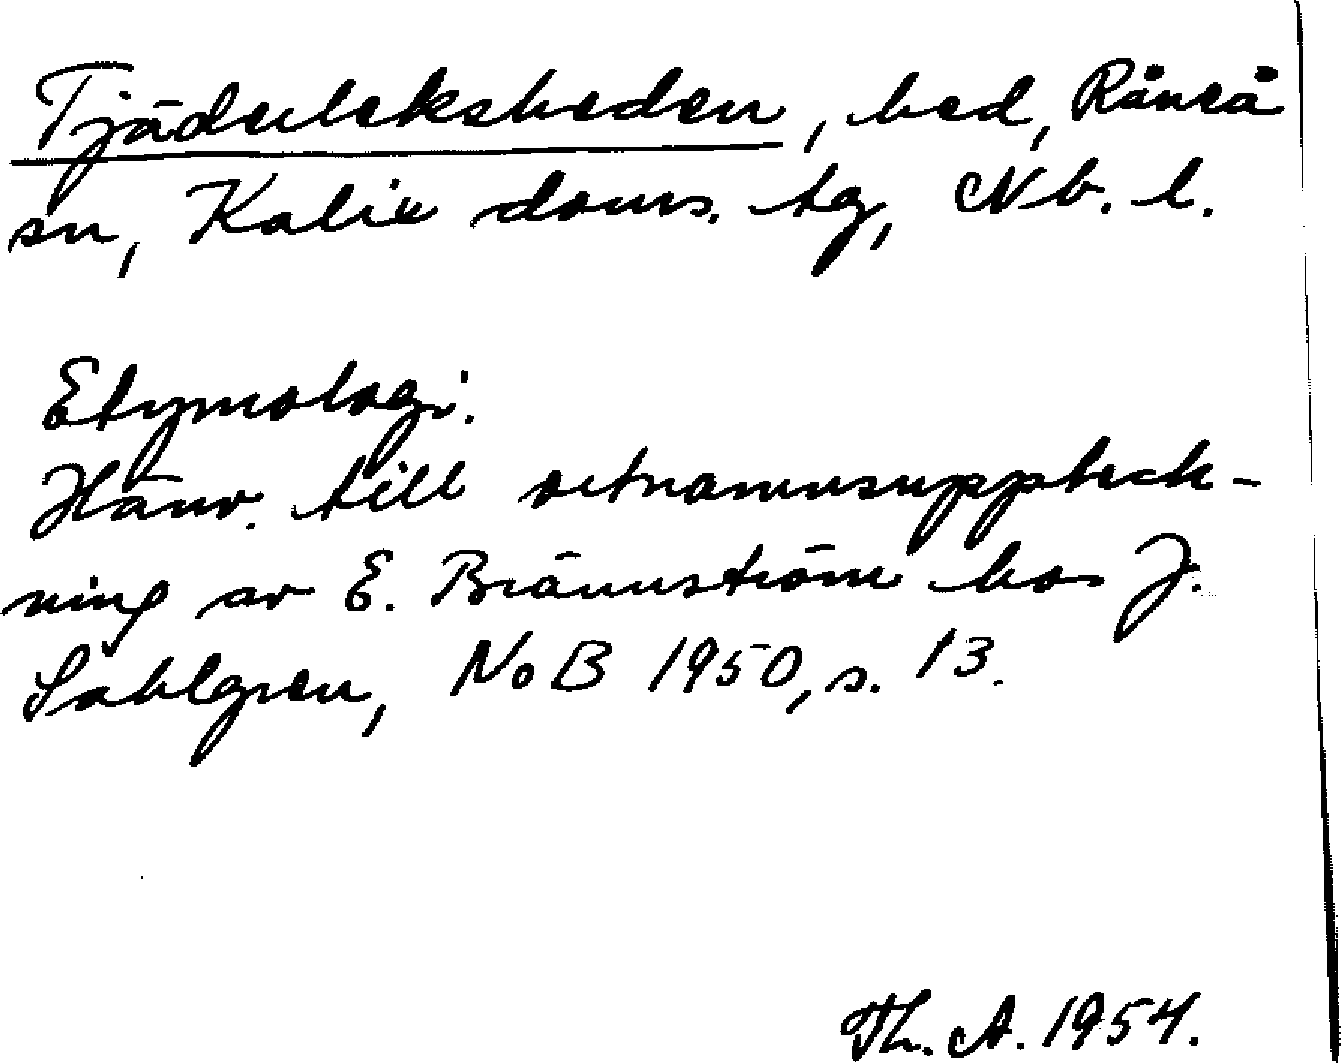 Tjäderleksheden, hed, Råneå
sn, Kalix doms. tg, Nb. l.
Etymologi.
Hänv. till ortnamnsuppteck-
ning av E. Brännström hos J.
Sahlgren, NoB 1950, s. 13.
Th. A. 1954.